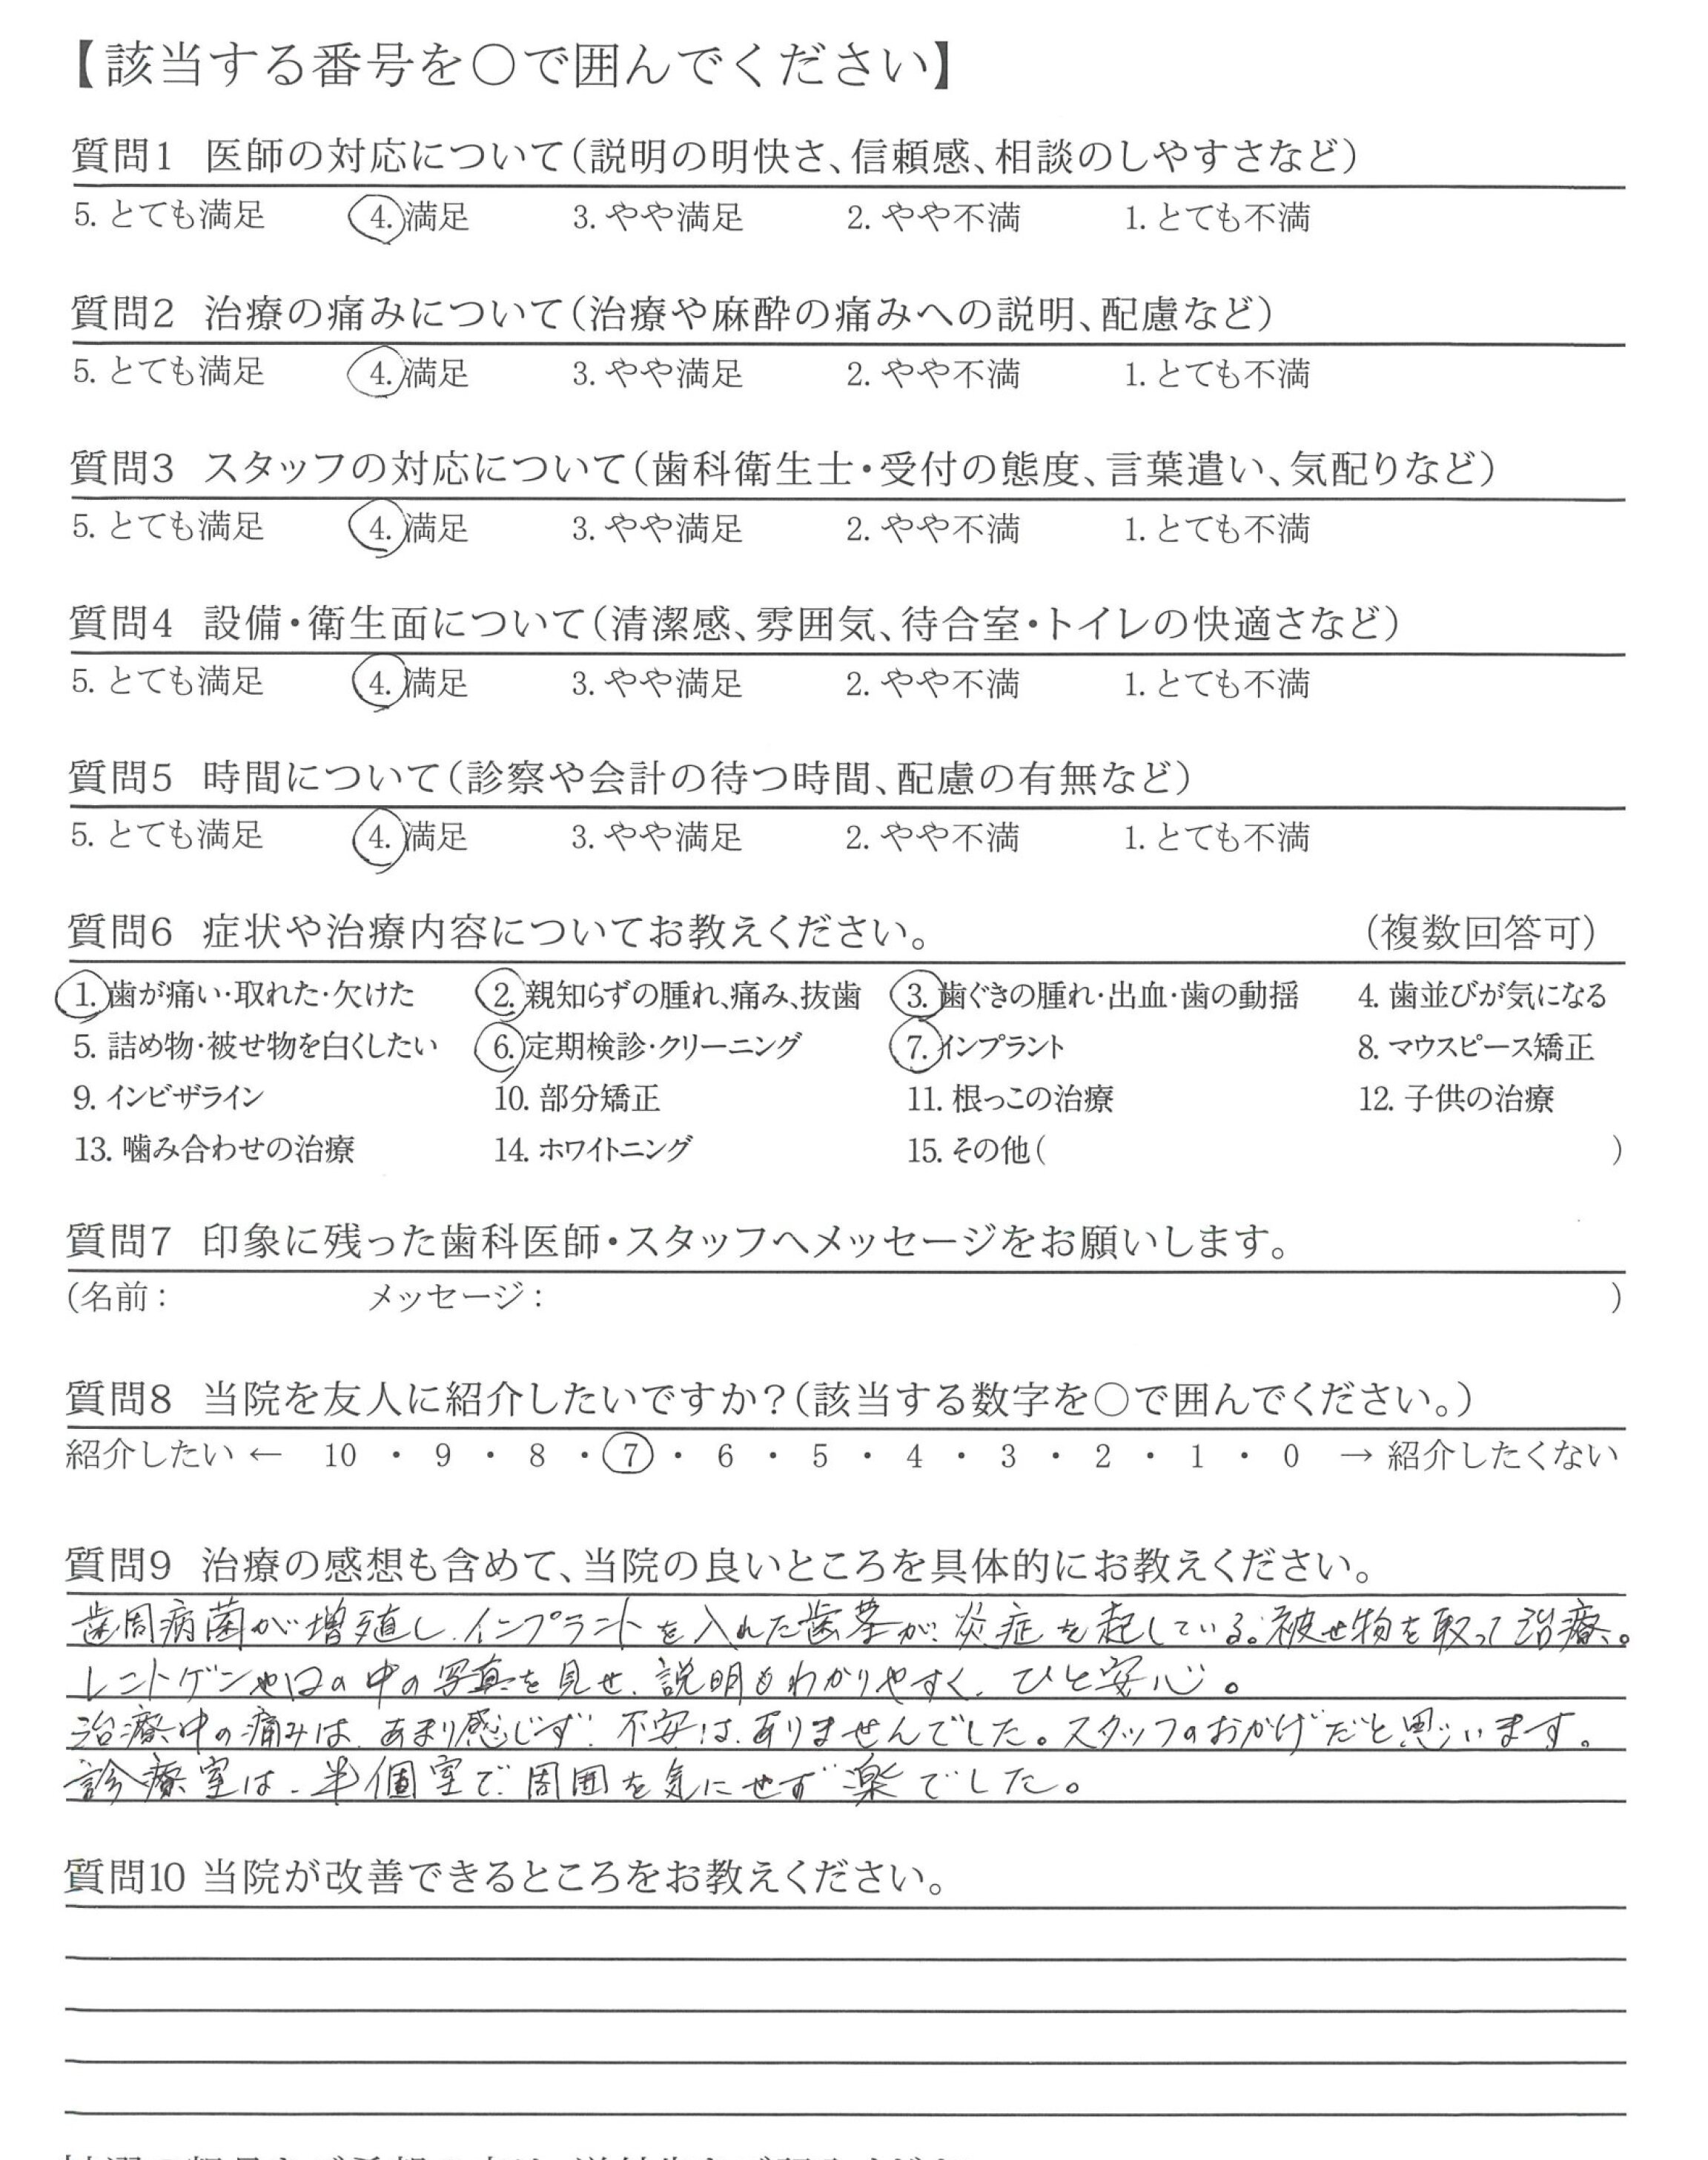 【該当する番号を○で囲んでください】
質問1 医師の対応について（説明の明快さ、信頼感、相談のしやすさなど）
5. とても満足 4. 満足 3. やや満足 2. やや不満 1. とても不満
質問2 治療の痛みについて（治療や麻酔の痛みへの説明、配慮など）
5. とても満足 4. 満足 3. やや満足 2. やや不満 1. とても不満
質問3 スタッフの対応について（歯科衛生士・受付の態度、言葉遣い、気配りなど）
5. とても満足 4. 満足 3. やや満足 2. やや不満 1. とても不満
質問4 設備・衛生面について（清潔感、雰囲気、待合室・トイレの快適さなど）
5. とても満足 4. 満足 3. やや満足 2. やや不満 1. とても不満
質問5 時間について（診察や会計の待つ時間、配慮の有無など）
5. とても満足 4. 満足 3. やや満足 2. やや不満 1. とても不満
質問6 症状や治療内容についてお教えください。 （複数回答可）
1. 歯が痛い・取れた・欠けた 2. 親知らずの腫れ、痛み、抜歯 3. 歯ぐきの腫れ・出血・歯の動揺 4. 歯並びが気になる
5. 詰め物・被せ物を白くしたい 6. 定期検診・クリーニング 7. インプラント 8. マウスピース矯正
9. インビザライン 10. 部分矯正 11. 根っこの治療 12. 子供の治療
13. 噛み合わせの治療 14. ホワイトニング 15. その他（ ）
質問7 印象に残った歯科医師・スタッフへメッセージをお願いします。
（名前： メッセージ： ）
質問8 当院を友人に紹介したいですか？（該当する数字を○で囲んでください。）
紹介したい ← 10 ・ 9 ・ 8 ・ 7 ・ 6 ・ 5 ・ 4 ・ 3 ・ 2 ・ 1 ・ 0 → 紹介したくない
質問9 治療の感想も含めて、当院の良いところを具体的にお教えください。
歯周病菌が増殖し、インプラントを入れた歯茎が、炎症を起している。被せ物を取って治療。
レントゲンや口の中の写真を見せ、説明もわかりやすく、ひと安心。
治療中の痛みは、あまり感じず、不安は、ありませんでした。スタッフのおかげだと思います。
診療室は、半個室で、周囲を気にせず楽でした。
質問10 当院が改善できるところをお教えください。